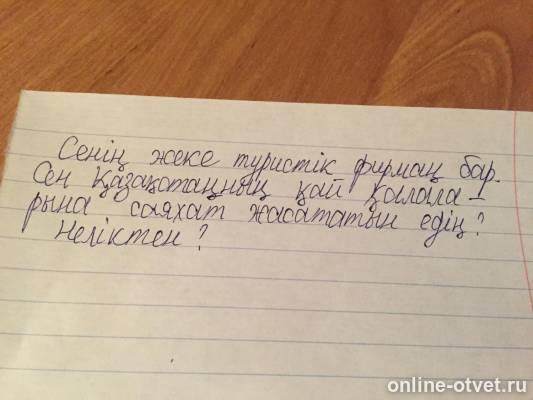 Сенің жеке туристік фирмаң бар.
Сен Қазақстанның қай қалала-
рына саяхат жасататын едің?
Неліктен?
online-otvet.ru